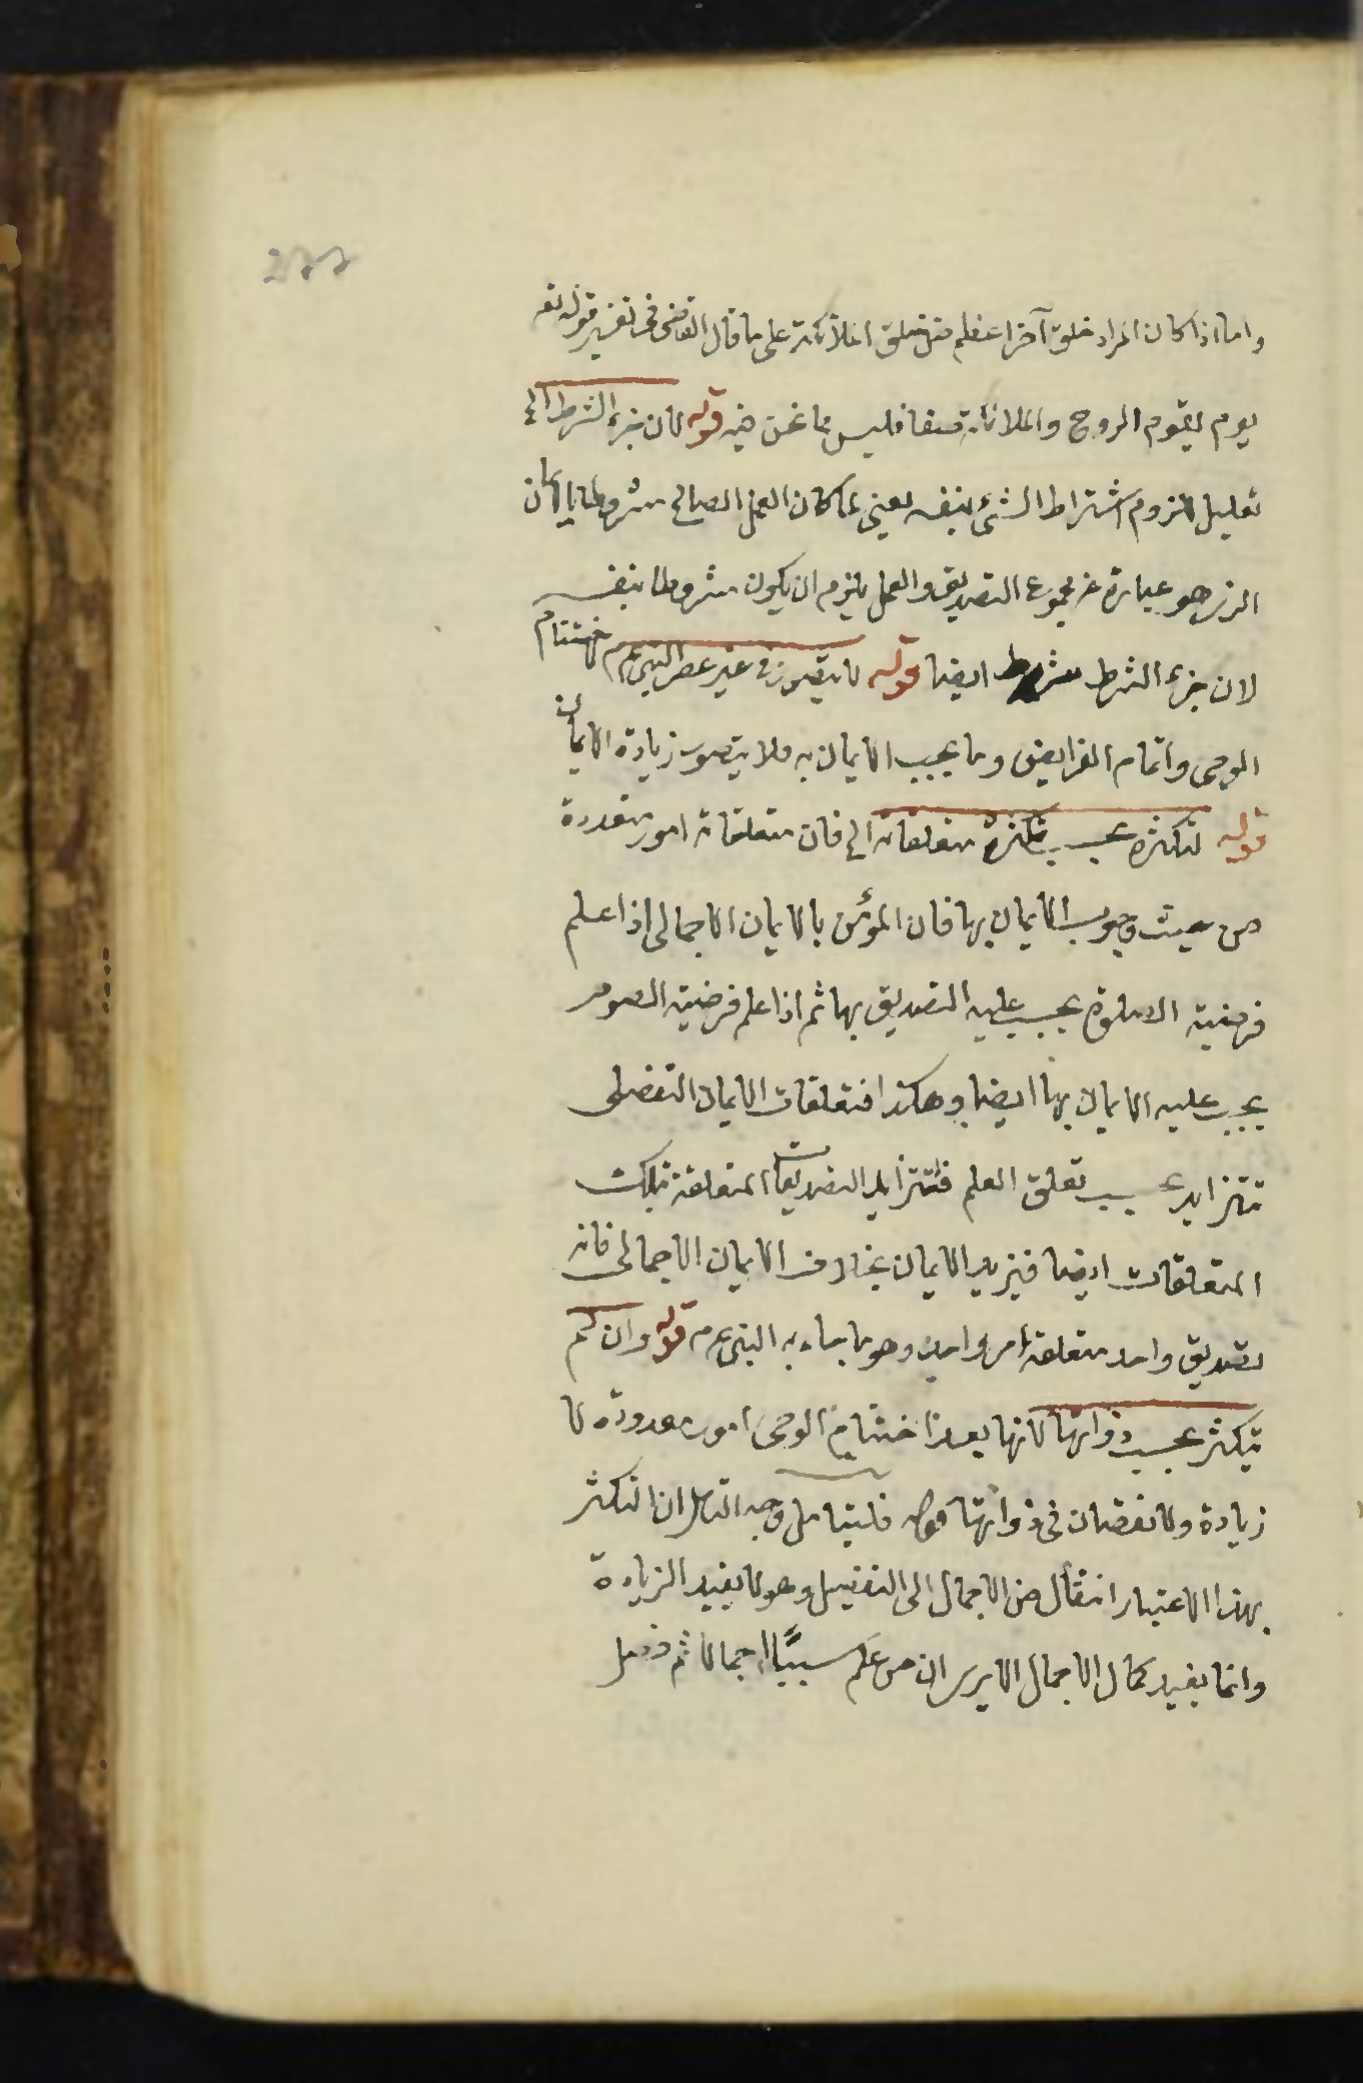 واما اذا كان المراد خلق آخر اعظم من خلق الملائكة على ما قال القاضى فى تفسير قوله تعه
يوم يقوم الروح والملائكة صفا فليس مما نحن فيه قوله لان جزء الشرط الخ
تعليل للزوم اشتراط الشئ بنفسه يعنى لما كان العمل الصالح مشروطا بالايمان
الذى هو عبارة عن مجموع التصديق والعمل يلزم ان يكون مشروطا بنفسه
لان جزء الشرط شرط ايضا قوله لا يتصور فى غير عصر النبى عم لاختتام
الوحى واتمام الفرايض وما يجب الايمان به فلا يتصور زيادة الايمان
قوله لتكثره بحسب تكثر متعلقاته الخ فان متعلقاته امور متعددة
من حيث وجوب الايمان بها فان المؤمن بالايمان الاجمالى اذا علم
فرضية الصلوة يجب عليه التصديق بها ثم اذا علم فرضية الصوم
يجب عليه الايمان بها ايضا وهكذا فمتعلقات الايمان التفصيلى
تتزايد بحسب تعلق العلم فتتزايد التصديقات المتعلقة بتلك
المتعلقات ايضا فيزيد الايمان بخلاف الايمان الاجمالى فانه
تصديق واحد متعلقة امر واحد وهو ما جاء به النبى عم قوله وان لم
يتكثر بحسب ذواتها لانها بعد اختتام الوحى امور معدودة لا
زيادة ولا نقصان فى ذواتها قوله فليتامل وجه التامل ان التكثر
بهذا الاعتبار انتقال من الاجمال الى التفصيل وهو لا يفيد الزيادة
وانما يفيد كمال الاجمال الا يرى ان من علم شيئًا اجمالا ثم فصل